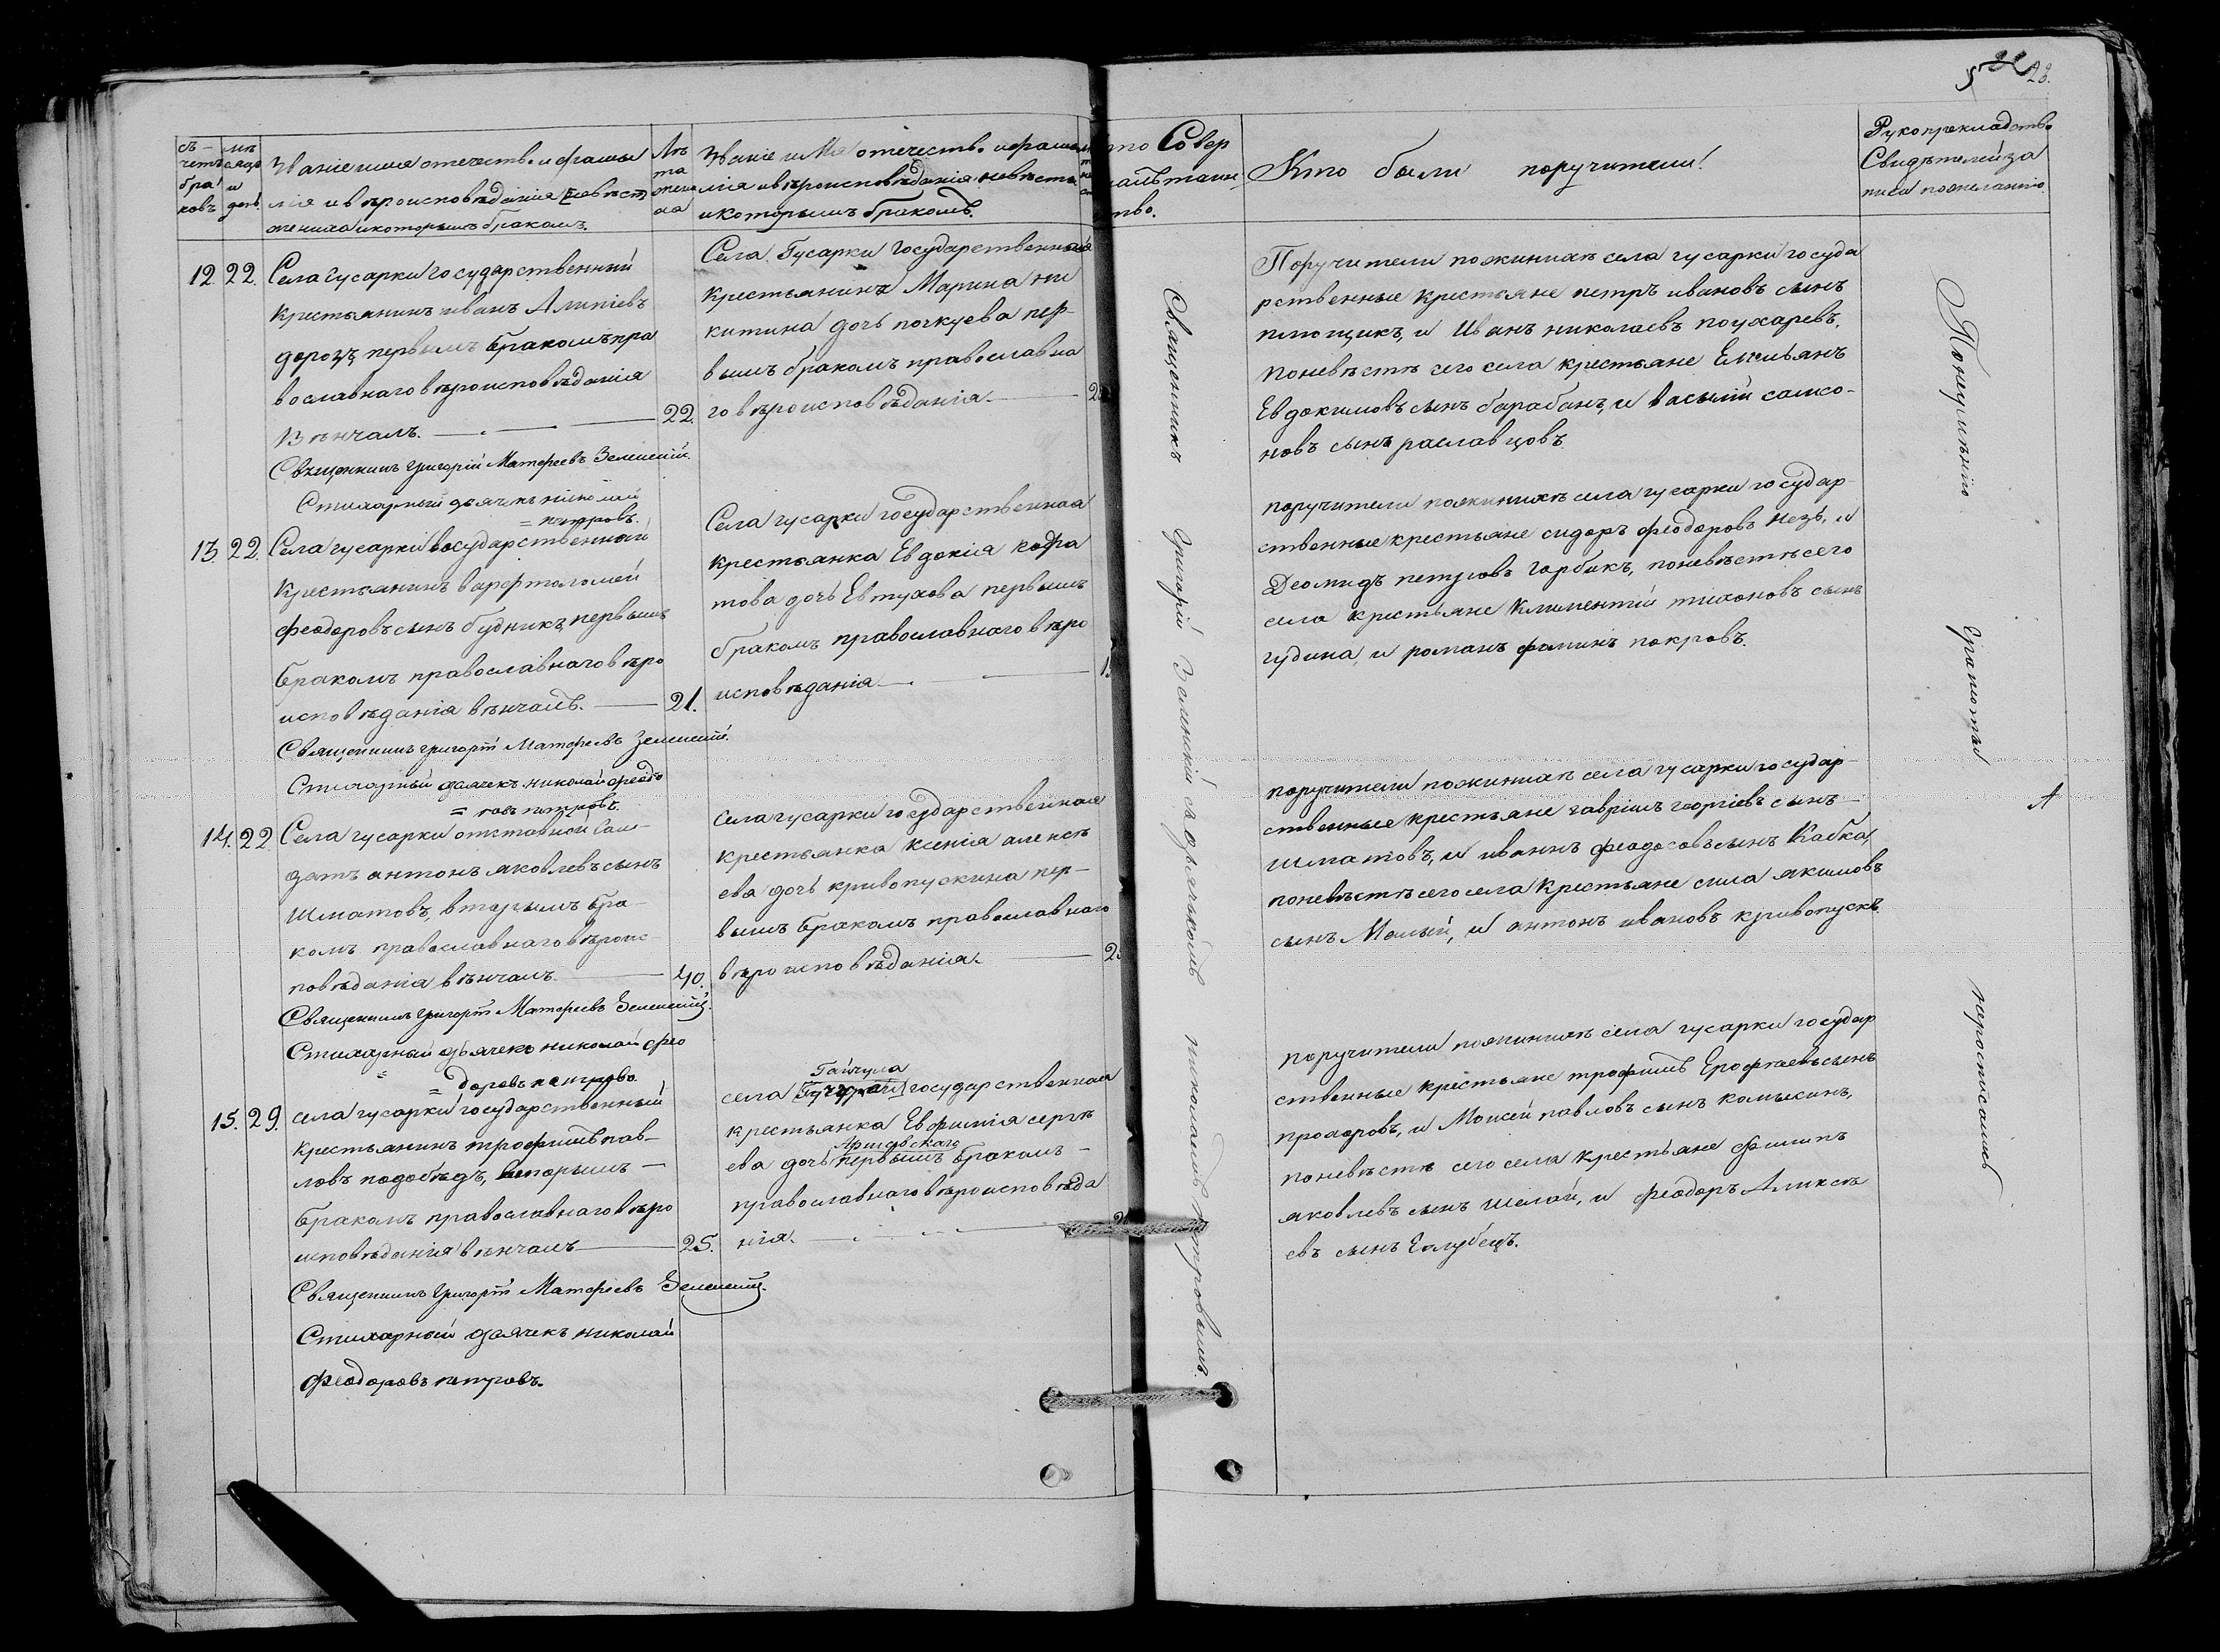 28.
съ-
четъ
бра
ковъ
мѣ
сяцъ
и
день.
Званіе имя отечество и фамы
лія и вѣроисповѣданія
жениха и которымъ бракомъ.
Лѣ
та
жени
ха
Званіе и Мя отечество и фами
лія и вѣроисповѣданія невѣсты
и которымъ бракомъ.
Кто были поручители.
Рукоприкладство
Свидѣтелей за
писи по желанію
12. 22. Села гусарки государственный
крестьянинъ иванъ Алипіевъ
дорошъ первымъ бракомъ пра
вославнаго вѣроисповѣданія
Вѣнчалъ. 22.
Священникъ григорій Матфеевъ Зеленскій.
Стихарный дьячекъ николай
= петровъ.
Села Гусарки государственная
крестьянина Марина ни
китина дочь почкуева пер-
вымъ бракомъ православна
го вѣроисповѣданія.
Поручители по женихѣ села гусарки госуда
рственные крестьяне петръ ивановъ сынъ
плющикъ, и Иванъ николаевъ поухаревъ,
по невѣстѣ сего села крестьяне Емельянъ
Евдокимовъ сынъ барабанъ, и васылій самсо-
новъ сынъ раславцовъ.
13. 22. Села гусарки государственный
крестьянинъ варфтоломей
феодоровъ сынъ будникъ, первымъ
бракомъ православнаго вѣро
исповѣданія вѣнчалъ. 21.
Священникъ григорій Матфеевъ Зеленскій.
Стихарный дьячекъ николай феодо
= ровъ петровъ.
Села гусарки государственная
крестьянка Евдокія кодра
това дочь Евтухова первымъ
бракомъ православнаго вѣро
исповѣданія
поручители по женихѣ села гусарки государ-
ственные крестьяне сидоръ феодоровъ незъ, и
Деомидъ петровъ гарбикъ, по невѣстѣ сего
села крестьяне Климентій тихоновъ сынъ
гудина, и романъ фоминъ покровъ.
14. 22. Села гусарки отставной сол-
датъ антонъ яковлевъ сынъ
Шматовъ, вторымъ бра-
комъ православнаго вѣроис-
повѣданія вѣнчалъ 40.
Священникъ Григорій Матфеевъ Зеленскій.
Стихарный дьячекъ николай фео
= доровъ петровъ.
Села гусарки государственная
крестьянка ксенія алексѣ
ева дочь кривопускина пер-
вымъ бракомъ православнаго
вѣроисповѣданія.
поручители по женихѣ села гусарки государ-
ственные крестьяне гаврiилъ георгіевъ сынъ
шматовъ, и иванъ феодосовъ сынъ Кабка,
по невѣстѣ сего села крестьяне сила якимовъ
сынъ Малый, и антонъ ивановъ кривопускъ.
15. 29. Села гусарки государственный
крестьянинъ трофимъ пав-
ловъ подобѣдъ, вторымъ
бракомъ православнаго вѣро
исповѣданія вѣнчалъ 25.
Священникъ Григорій Матфеевъ Зеленскій.
Стихарный дьячекъ николай
феодоровъ петровъ.
Гайчула
села государственная
крестьянка Евфимія сергѣ
ева дочь первымъ бракомъ
православнаго вѣроисповѣда
нія.
поручители по женихѣ села гусарки государ
ственные крестьяне трофимъ Ерофтаевъ сынъ
прохоровъ, и Моисей павловъ сынъ комысинъ,
по невѣстѣ сего села крестьяне филипъ
яковлевъ сынъ шелай, и феодоръ Алексѣ
евъ сынъ Голубецъ.
Священникъ Григорій Зеленскій съ дьячкомъ николаемъ петровымъ.
По неумѣнію грамоты не росписались